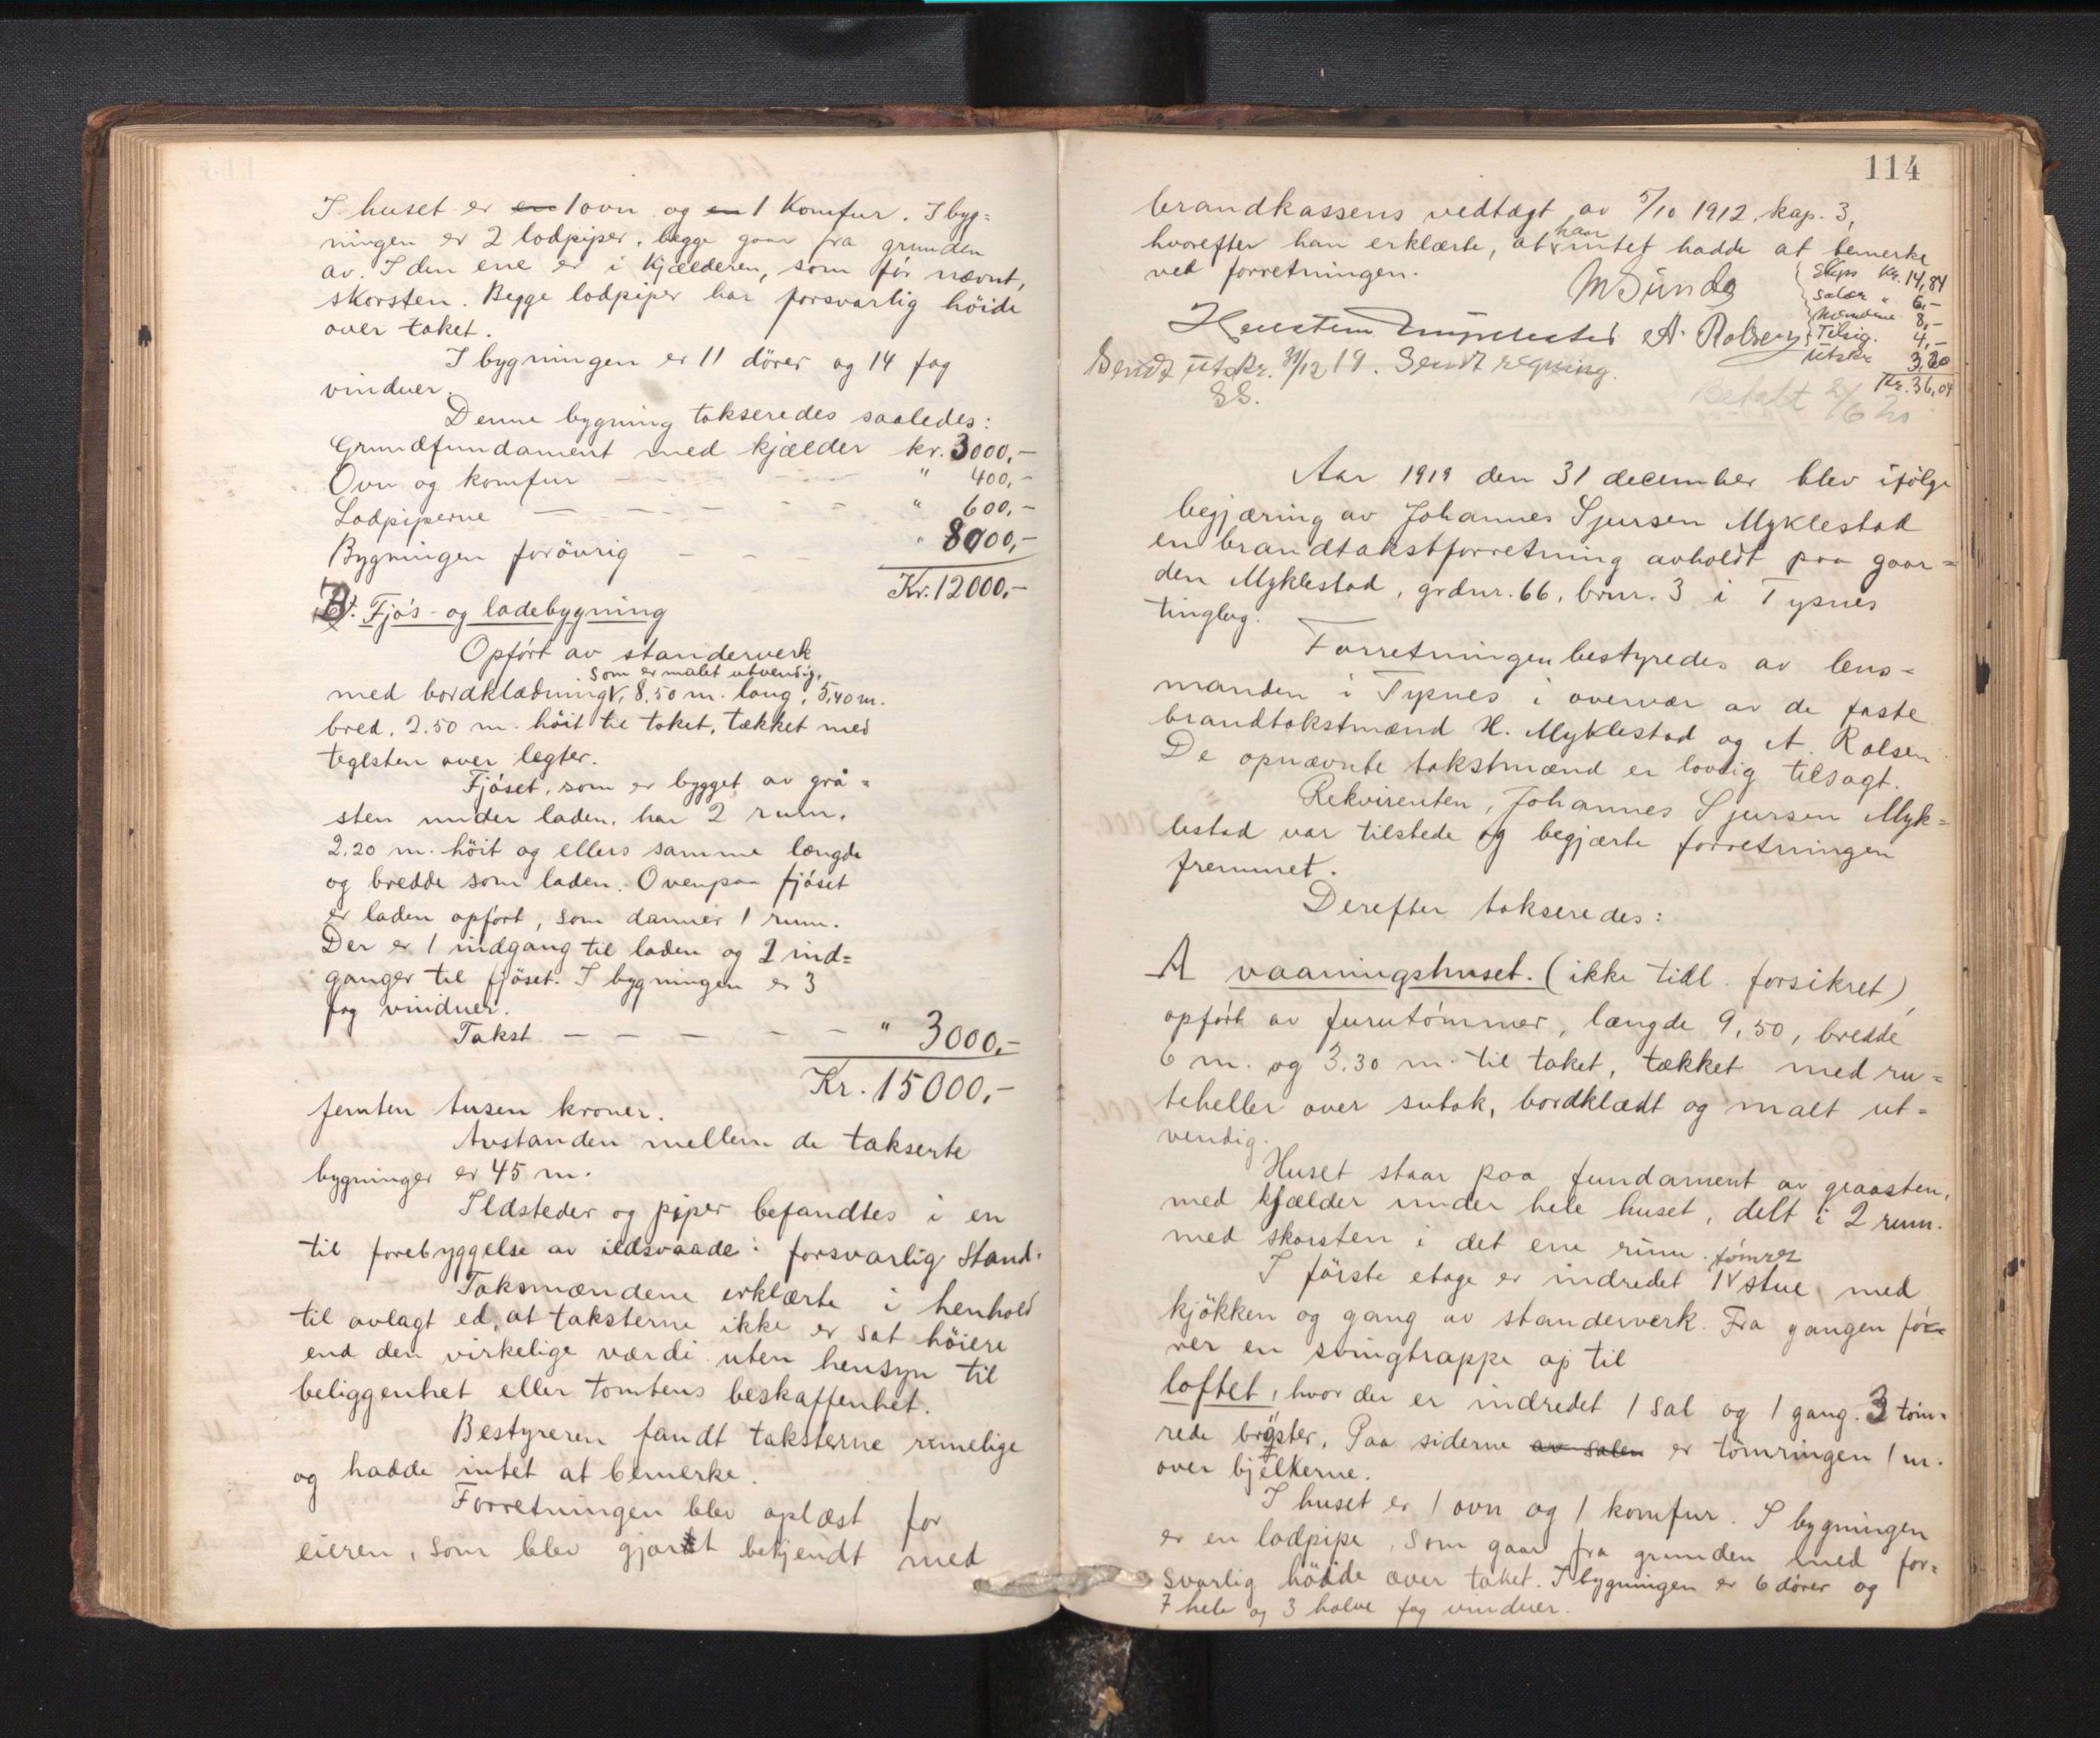 I huset er en 1 ovn og en 1 Komfur. I byg=
ningen er 2 lodpiper, begge gaar fra grunden
av. I den ene er i Kjælderen, som før nævnt,
skorsten. Begge lodpiper har forsvarlig høide
over taket.
I bygningen er 11 dører og 14 fag
vinduer.
Denne bygning takseredes saaledes:
Grundfundament med kjælder kr. 3000,-
Ovn og komfur — — — " 400,-
Lodpiperne — — — " 600,-
Bygningen forøvrig — — — " 8000,-
Kr. 12000,-
B. Fjøs- og ladebygning
Opført av standerverk
som er malet utvendig,
med bordklædning, 8,50 m. lang, 5,40 m.
bred, 2.50 m. høit til taket, tækket med
teglsten over legter.
Fjøset, som er bygget av grå=
sten under laden, har 2 rum,
2,20 m. høit og ellers samme længde
og bredde som laden. Ovenpaa fjøset
er laden opført, som danner 1 rum.
Der er 1 indgang til laden og 2 ind=
ganger til fjøset. I bygningen er 3
fag vinduer.
Takst — — — — — " 3000,-
Kr. 15000,-
femten tusen kroner.
Avstanden mellem de takserte
bygninger er 45 m.
Ildsteder og piper befandtes i en
til forebyggelse av ildsvaade: forsvarlig Stand.
Taksmændene erklærte i henhold
til avlagt ed, at taksterne ikke er sat høiere
end den virkelige værdi uten hensyn til
beliggenhet eller tomtens beskaffenhet.
Bestyreren fandt taksterne rimelige
og hadde intet at bemerke.
Forretningen blev oplæst for
eieren, som blev gjort bekjendt med
114
brandkassens vedtægt av 5/10 1912, kap. 3,
hvorefter han erklærte, at han intet hadde at bemerke
ved forretningen.
M Sunde
Skyss Kr. 14,84
Salær " 6,-
Mændene 8,-
Tilsig. 4,-
Utskr 3,20
Kr. 36,04
A. Rolsen
Sendt utskr. 31/12 19. Sendt regning.
SS.
Betalt 2/6 20
Aar 1919 den 31 december blev ifølge
begjæring av Johannes Sjursen Myklestad
en brandtakstforretning avholdt paa gaar=
den Myklestad, grdnr. 66, brnr. 3 i Tysnes
tinglag.
Forretningen bestyredes av lens=
manden i Tysnes i overvær av de faste
brandtakstmænd H. Myklestad og A. Rolsen
De opnævnte takstmænd er lovlig tilsagt.
Rekvirenten, Johannes Sjursen Myk=
lestad var tilstede og begjærte forretningen
fremmet.
Derefter takseredes:
A vaaningshuset. (ikke tidl. forsikret),
opført av furutømmer, længde 9,50, bredde
6 m. og 3.30 m. til taket, tækket med ru=
teheller over sutak, bordklædt og malt ut=
vendig.
Huset staar paa fundament av graasten,
med kjælder under hele huset, delt i 2 rum.
med skorsten i det ene rum.
I første etage er indredet 1 tømret stue med
kjøkken og gang av standerverk. Fra gangen fø=
rer en svingtrappe op til
loftet, hvor der er indredet 1 sal og 1 gang. 3 tøm=
rede brøster, Paa siderne av salen er tømringen 1 m.
over bjelkerne.
I huset er 1 ovn og 1 komfur. I bygningen
er en lodpipe, som gaar fra grunden med for=
svarlig høide over taket. I bygningen er 6 dører og
7 hele og 3 halve fag vinduer.